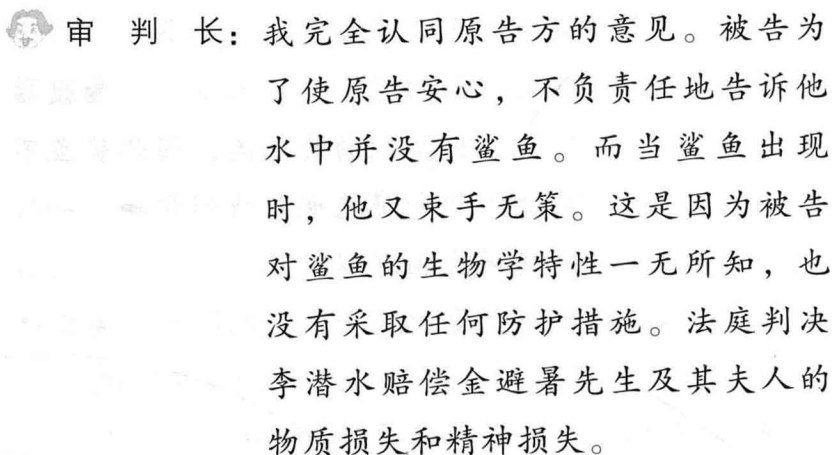 审 判 长：我完全认同原告方的意见。被告为
了使原告安心，不负责任地告诉他
水中并没有鲨鱼。而当鲨鱼出现
时，他又束手无策。这是因为被告
对鲨鱼的生物学特性一无所知，也
没有采取任何防护措施。法庭判决
李潜水赔偿金避暑先生及其夫人的
物质损失和精神损失。